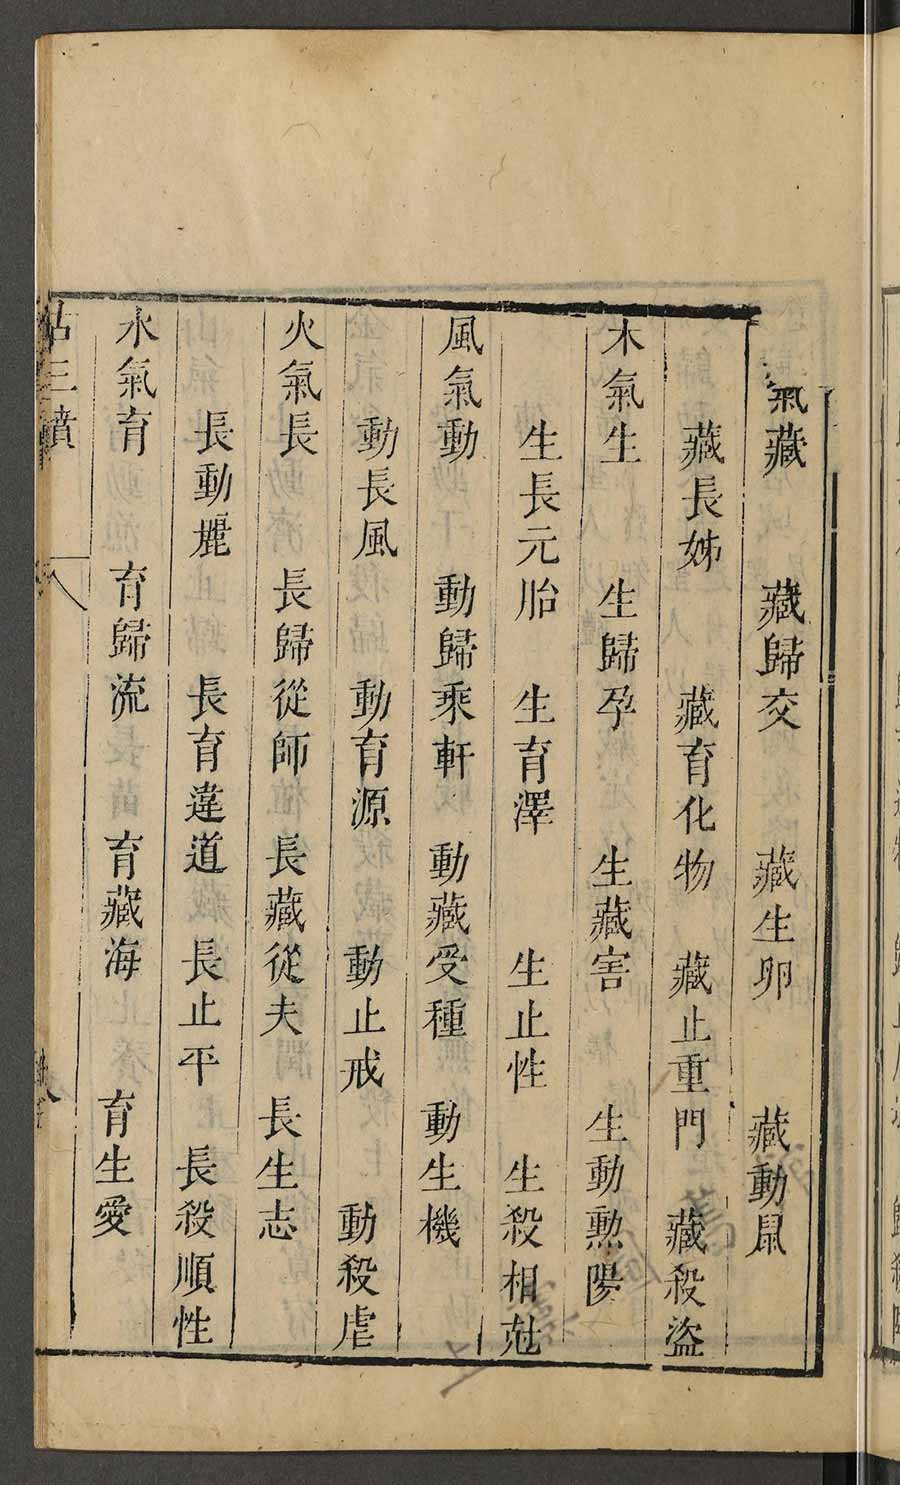 氣藏　藏歸交　藏生卵　藏動鼠
藏長姊　藏育化物　藏止重門　藏殺盜
木氣生　生歸孕　生藏害　生動勲陽
生長元胎　生育澤　生止性　生殺相尅
風氣動　動歸乘軒　動藏受種　動生機
動長風　動育源　動止戒　動殺虐
火氣長　長歸從師　長藏從夫　長生志
長動麗　長育違道　長止平　長殺順性
水氣育　育歸流　育藏海　育生愛
古三墳　八